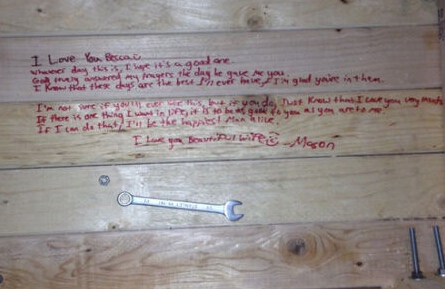 I Love You Becca
Whatever day this is, I hope it's a good one.
God truely answered my prayers the day he gave me you.
I know that these days are the best I'll ever have, & I'm glad you're in them.
I'm not sure if you'll ever see this, but if you do, Just know that I Love you very Much
If there is one thing I want in life, it is to be as good to you as you are to me.
If I can do that, I'll be the happiest Man alive.
I Love you Beautiful Wife - Mason